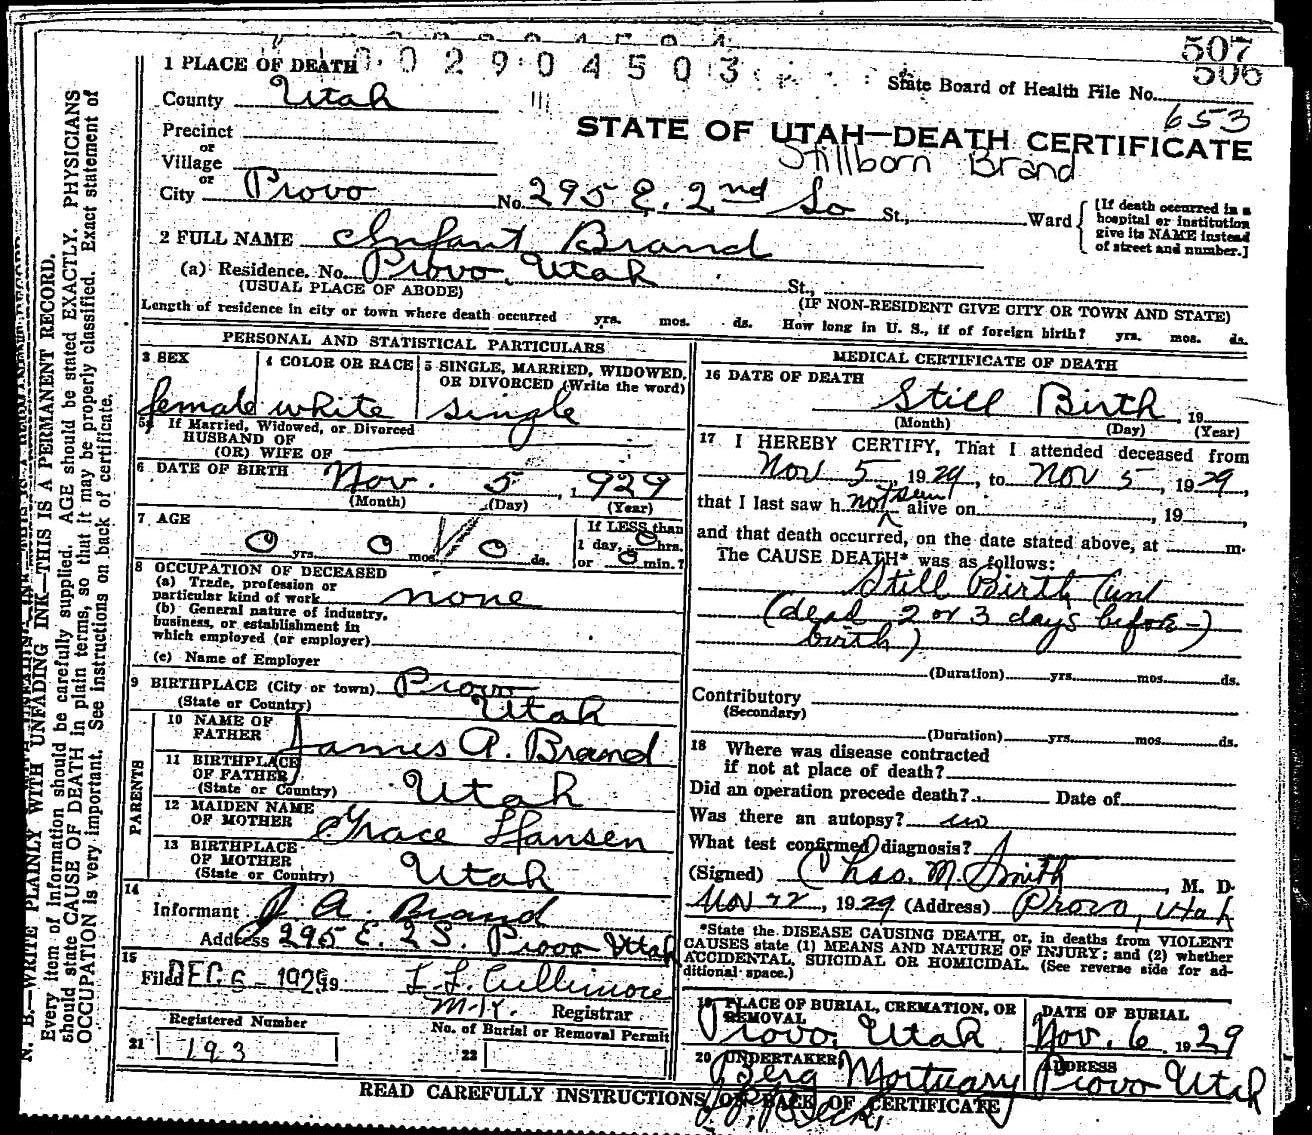 507
506
0 0 2 9 0 4 5 0 3
1 PLACE OF DEATH
State Board of Health File No.
653
County Utah
STATE OF UTAH—DEATH CERTIFICATE
Stillborn Brand
Precinct
or
Village
or
City Provo No. 295 E. 2nd So St., Ward
[If death occurred in a hospital or institution give its NAME instead of street and number.]
2 FULL NAME Infant Brand
(a) Residence. No. Provo, Utah St.,
(USUAL PLACE OF ABODE) (IF NON-RESIDENT GIVE CITY OR TOWN AND STATE)
Length of residence in city or town where death occurred yrs. mos. ds. How long in U. S., if of foreign birth? yrs. mos. ds.
PERSONAL AND STATISTICAL PARTICULARS
3 SEX 4 COLOR OR RACE 5 SINGLE, MARRIED, WIDOWED,
OR DIVORCED (Write the word)
female white single
5a If Married, Widowed, or Divorced
HUSBAND OF
(OR) WIFE OF
6 DATE OF BIRTH Nov. 5, 1929
(Month) (Day) (Year)
7 AGE If LESS than
0 yrs. 0 mos. 0 ds. 1 day, 0 hrs.
or 0 min.?
8 OCCUPATION OF DECEASED
(a) Trade, profession or
particular kind of work none
(b) General nature of industry,
business, or establishment in
which employed (or employer)
(c) Name of Employer
9 BIRTHPLACE (City or town) Provo
(State or Country) Utah
PARENTS
10 NAME OF
FATHER James A. Brand
11 BIRTHPLACE
OF FATHER
(State or Country) Utah
12 MAIDEN NAME
OF MOTHER Grace Hansen
13 BIRTHPLACE
OF MOTHER
(State or Country) Utah
14
Informant J. A. Brand
Address 295 E. 2 S. Provo Utah
15
Filed DEC 6 - 1929 19 L. L. Cullimore
M.K. Registrar
Registered Number No. of Burial or Removal Permit
21 193 22
MEDICAL CERTIFICATE OF DEATH
16 DATE OF DEATH
Still Birth, 19
(Month) (Day) (Year)
17 I HEREBY CERTIFY, That I attended deceased from
Nov 5, 1929, to Nov 5, 1929,
that I last saw h not seen alive on , 19 ,
and that death occurred, on the date stated above, at m.
The CAUSE DEATH* was as follows:
Still Birth
(dead 2 or 3 days before
birth)
(Duration) yrs. mos. ds.
Contributory
(Secondary)
(Duration) yrs. mos. ds.
18 Where was disease contracted
if not at place of death?
Did an operation precede death? Date of
Was there an autopsy? no
What test confirmed diagnosis?
(Signed) Chas. M. Smith, M. D.
Nov 22, 1929 (Address) Provo, Utah
*State the DISEASE CAUSING DEATH, or, in deaths from VIOLENT
CAUSES state (1) MEANS AND NATURE OF INJURY; and (2) whether
ACCIDENTAL, SUICIDAL OR HOMICIDAL. (See reverse side for ad-
ditional space.)
19 PLACE OF BURIAL, CREMATION, OR
REMOVAL
Provo, Utah
DATE OF BURIAL
Nov. 6, 1929
20 UNDERTAKER
Berg Mortuary
ADDRESS
Provo Utah
READ CAREFULLY INSTRUCTIONS ON BACK OF CERTIFICATE
N. B.—WRITE PLAINLY WITH UNFADING INK—THIS IS A PERMANENT RECORD.
Every item of information should be carefully supplied. AGE should be stated EXACTLY. PHYSICIANS
should state CAUSE OF DEATH in plain terms, so that it may be properly classified. Exact statement of
OCCUPATION is very important. See instructions on back of certificate.